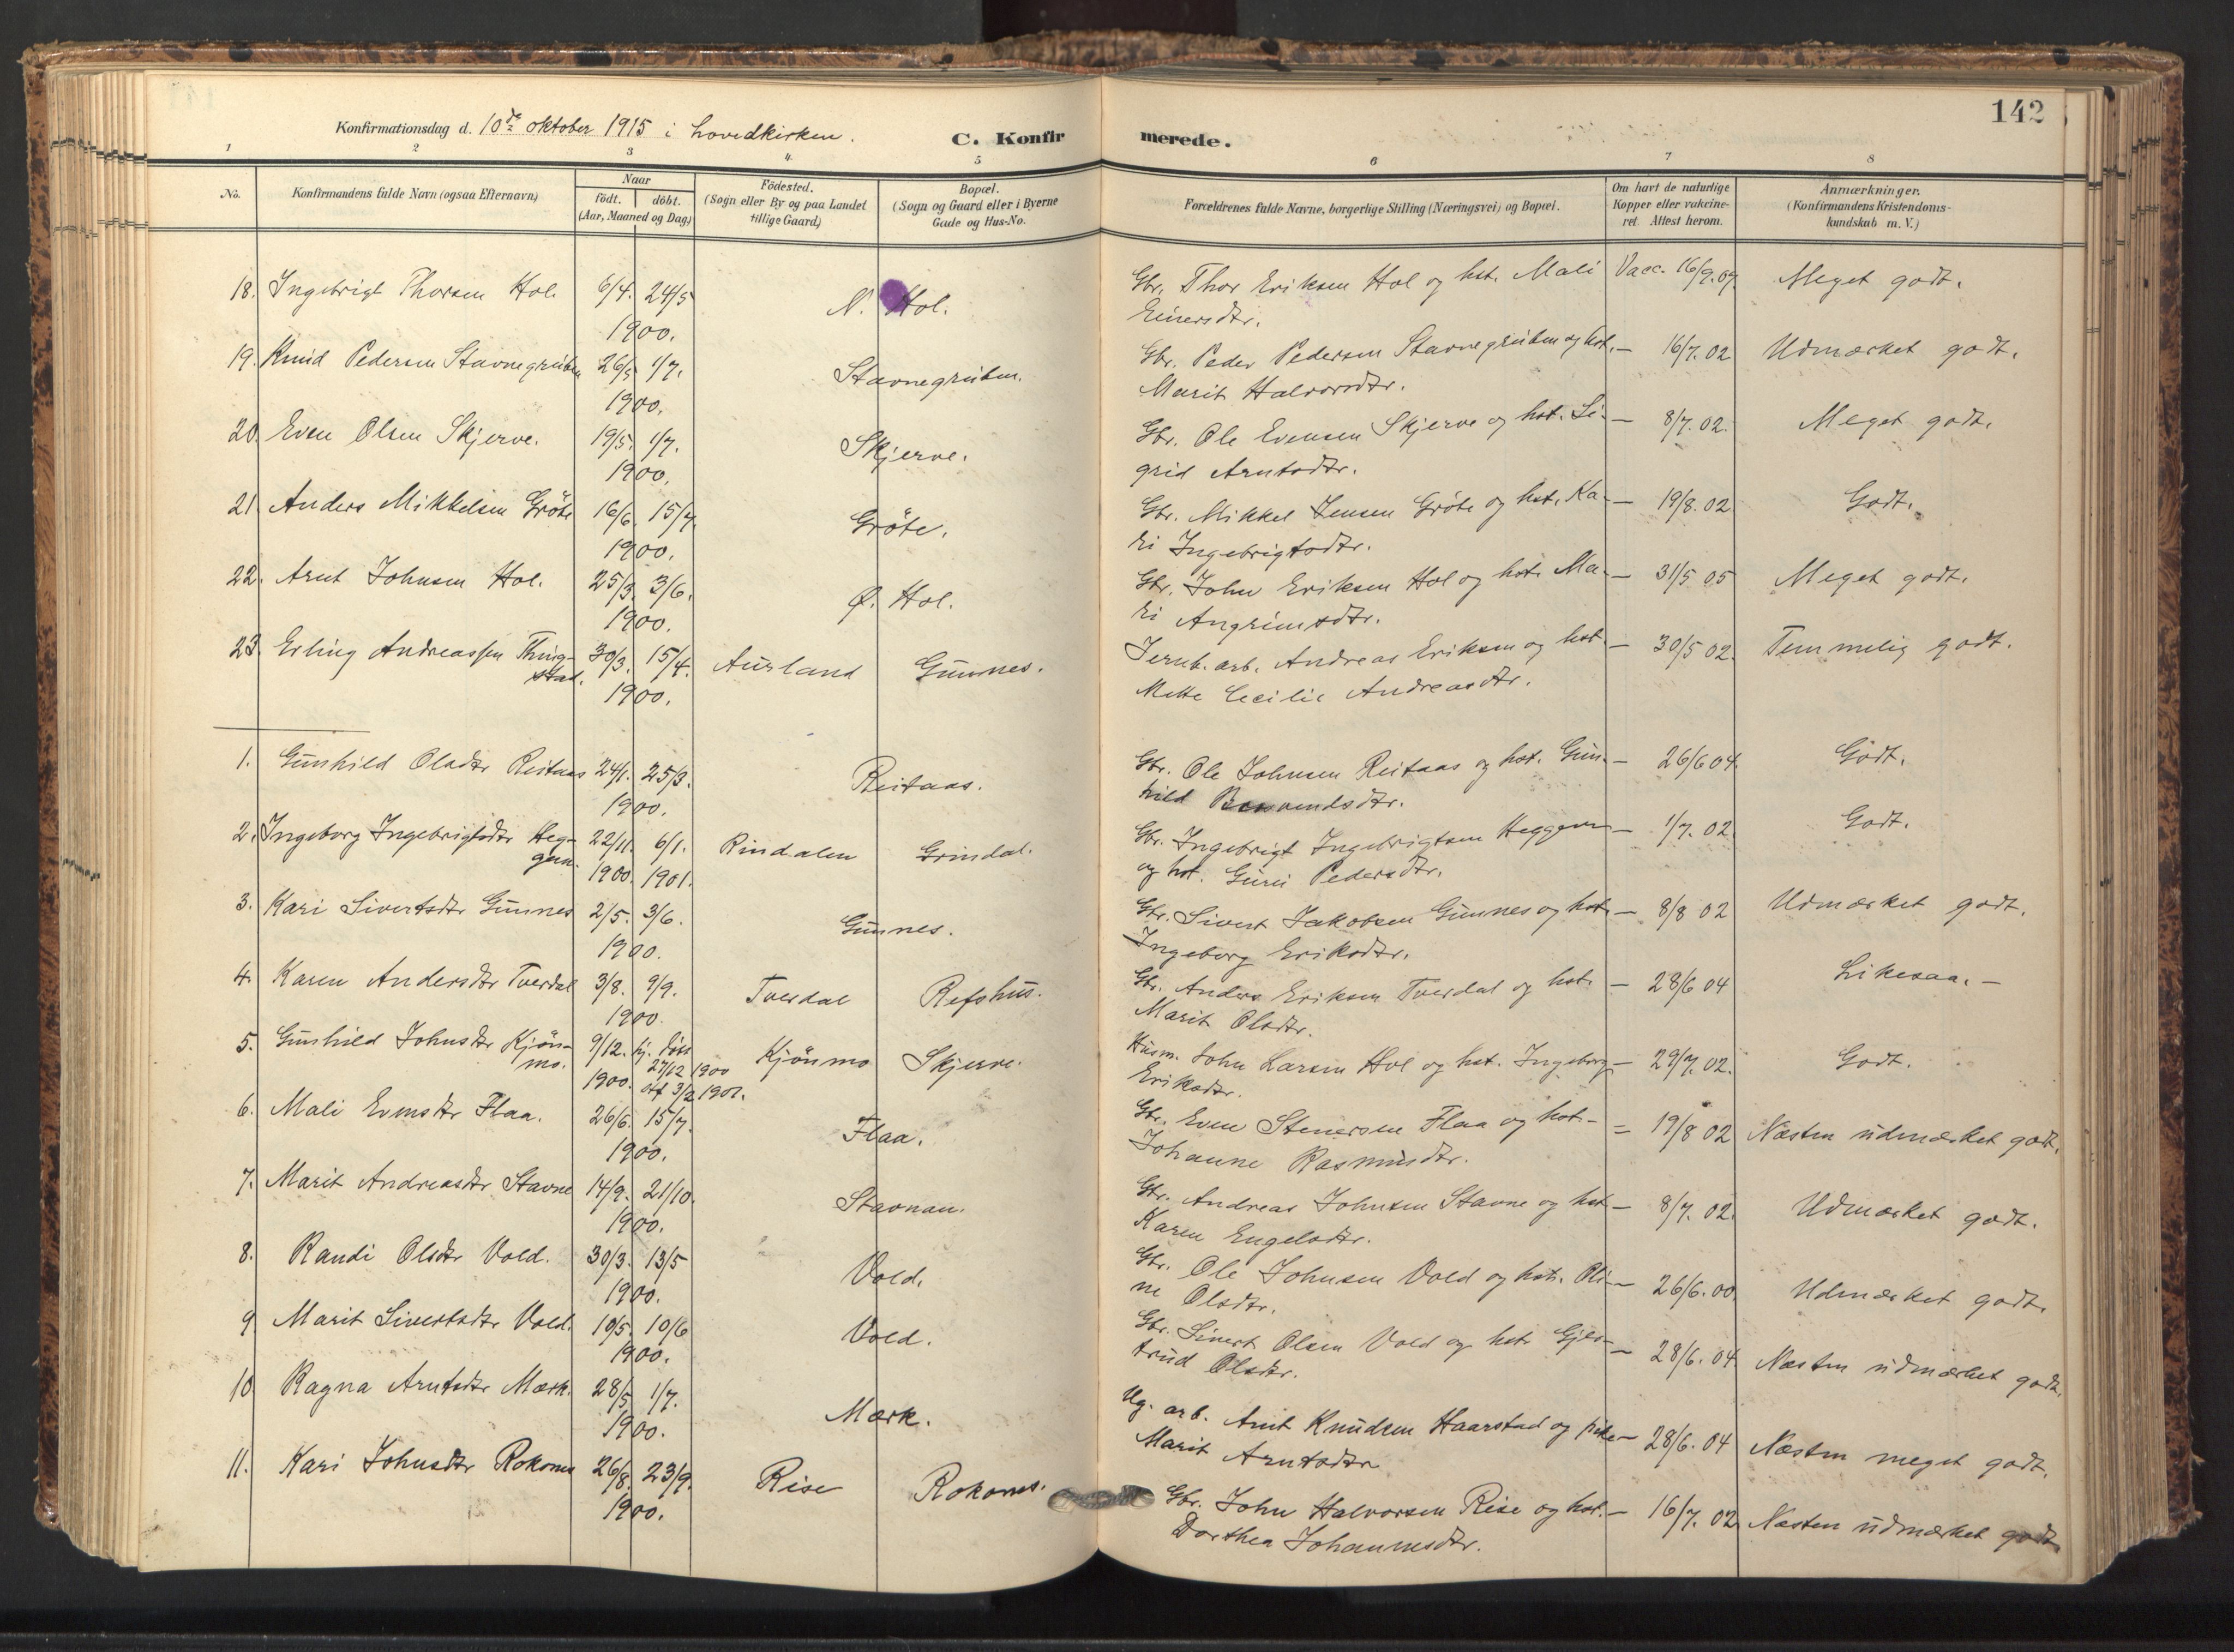 142
Konfirmationsdag d. 10de oktober 1915 i hovedkirken.
C. Konfirmerede.
1 2 3 4 5 6 7 8
No.
Konfirmandens fulde Navn (ogsaa Efternavn)
Naar
födt. döbt.
(Aar, Maaned og Dag)
Födested.
(Sogn eller By og paa Landet
tillige Gaard)
Bopæl.
(Sogn og Gaard eller i Byerne
Gade og Hus-No.
Forældrenes fulde Navne, borgerlige Stilling (Næringsvei) og Bopæl.
Om havt de naturlige
Kopper eller vakcine-
ret. Attest herom.
Anmærkninger.
(Konfirmandens Kristendoms-
kundskab m. V.)
18. Ingebrigt Thorsen Hol. 6/4. 24/5 N. Hol. Gbr. Thor Eriksen Hol og hst. Mali Vacc. 16/9.07. Meget godt.
1900. Einersdtr.
19. Knud Pedersen Stavnegruben 26/5 1/7. Stavnegruben. Gbr. Peder Pedersen Stavnegruben og hst. — 16/7.02 Udmærket godt.
1900. Marit Halvorsdtr.
20. Even Olsen Skjerve. 19/5. 1/7. Skjerve. Gbr. Ole Evensen Skjerve og hst. Si- — 8/7.02. Meget godt.
1900. grid Arntsdtr.
21. Anders Mikkelsen Gröte 16/6. 15/7. Gröte. Gbr. Mikkel Jensen Gröte og hst. Ka- — 19/8.02 Godt.
1900. ri Ingebrigtsdtr.
22. Arnt Johnsen Hol. 25/3. 3/6. Ø. Hol. Gbr. John Eriksen Hol og hst. Ma- — 31/5 05 Meget godt.
1900. ri Angrimsdtr.
23. Erling Andreassen Thing- 30/3. 15/4. Aurland Gunnes. Jernb. arb. Andreas Eriksen og hst. — 30/5 02. Temmelig godt.
stad. 1900. Mette Cecilie Andreasdtr.
1. Gunhild Olsdtr Reitaas 24/1. 25/3. Reitaas. Gbr. Ole Johnsen Reitaas og hst. Gun- — 26/6 04. Godt.
1900. hild
2. Ingeborg Ingebrigtsdtr Heg- 22/11. 6/1. Rindalen Grindal. Gbr. Ingebrigt Ingebrigtsen Heggem — 1/7.02. Godt.
gem. 1900. 1901. og hst. Guri Pedersdtr.
3. Kari Sivertsdtr Gunnes 2/5. 3/6. Gunnes. Gbr. Sivert Jakobsen Gunnes og hst. — 8/8 02 Udmærket godt.
1900. Ingeborg Eriksdtr.
4. Karen Andersdtr Tverdal 3/8. 9/9. Tverdal Refshus. Gbr. Anders Eriksen Tverdal og hst. — 28/6 04 Likesaa. —
1900. Marit Olsdtr.
5. Gunhild Johnsdtr Kjön- 9/12. hj. döbt Kjönmo Skjerve. Husm. John Larsen Hol og hst. Ingeborg — 29/7.02. Godt.
mo. 1900. 27/12 1900 Eriksdtr.
off 3/2 1901.
6. Mali Evensdtr Flaa. 26/6. 15/7. Flaa. Gbr. Even Stenersen Flaa og hst. — 19/8 02 Næsten udmærket godt.
1900. Johanne Rasmusdtr.
7. Marit Andreasdtr Stavne 14/9. 21/10. Stavnan. Gbr. Andreas Johnsen Stavne og hst — 8/7.02. Udmærket godt.
1900. Karen Engelsdtr.
8. Randi Olsdtr Vold. 30/3. 13/5 Vold. Gbr. Ole Johnsen Vold og hst. Oli- — 26/6.00. Udmærket godt.
1900. ne Olsdtr.
9. Marit Sivertsdtr Vold. 10/5. 10/6 Vold. Gbr. Sivert Olsen Vold og hst. Gjer- — 28/6.04 Næsten udmærket godt.
1900. trud Olsdtr.
10. Ragna Arntsdtr Mærk. 28/5 1/7. Mærk. Ug. arb. Arnt Knudsen Haarstad og pike — 28/6.04 Næsten meget godt.
1900. Marit Arntsdtr
11. Kari Johnsdtr Rokones 26/8. 23/9. Rise Rokones. Gbr. John Halvorsen Rise og hst. — 16/7.02 Næsten udmærket godt
1900. Dorthea Johannesdtr.